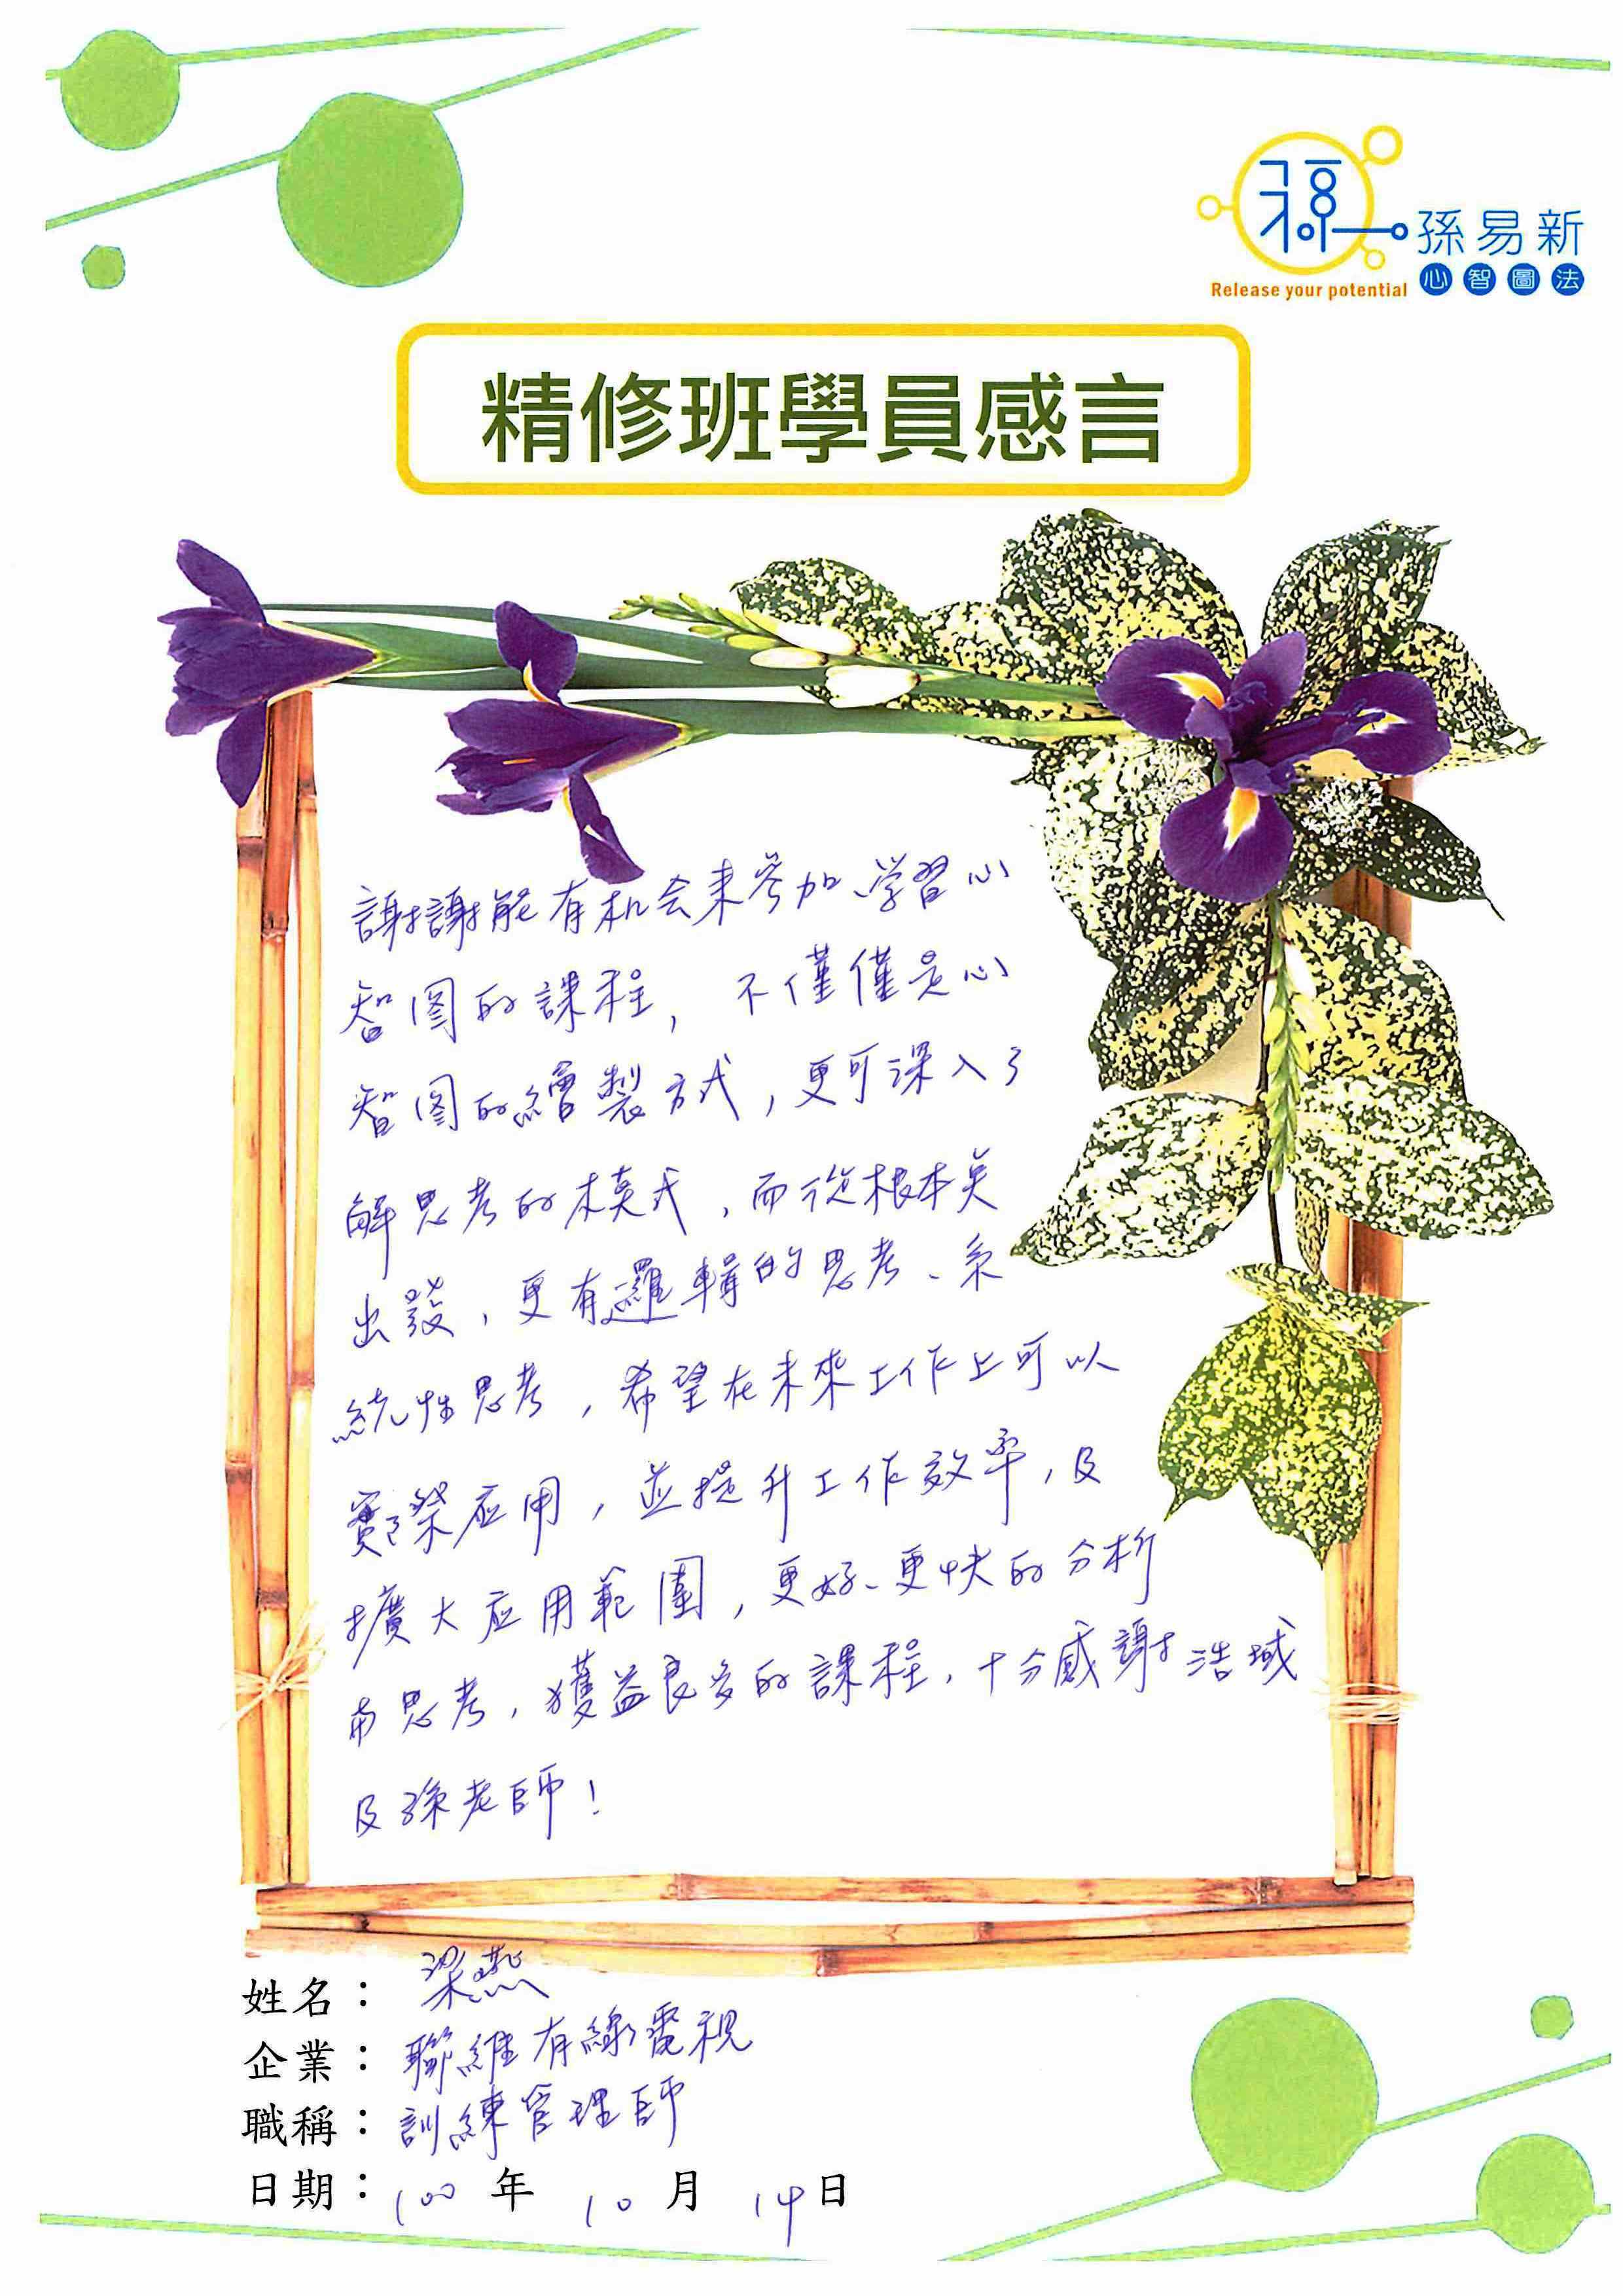 孫易新
心智圖法
Release your potential
精修班學員感言
謝謝能有机会来參加、学習心
智图的課程，不僅僅是心
智图的繪製方式，更可深入了
解思考的模式，而從根本矣
出發，更有邏輯的思考、系
統性思考，希望在未來工作上可以
實際应用，並提升工作效率，及
擴大应用範圍，更好、更快的分析
与思考，獲益良多的課程，十分感謝浩域
及孫老師！
姓名：梁燕
企業：聯維有線電視
職稱：訓練管理師
日期：100年 10月 14日